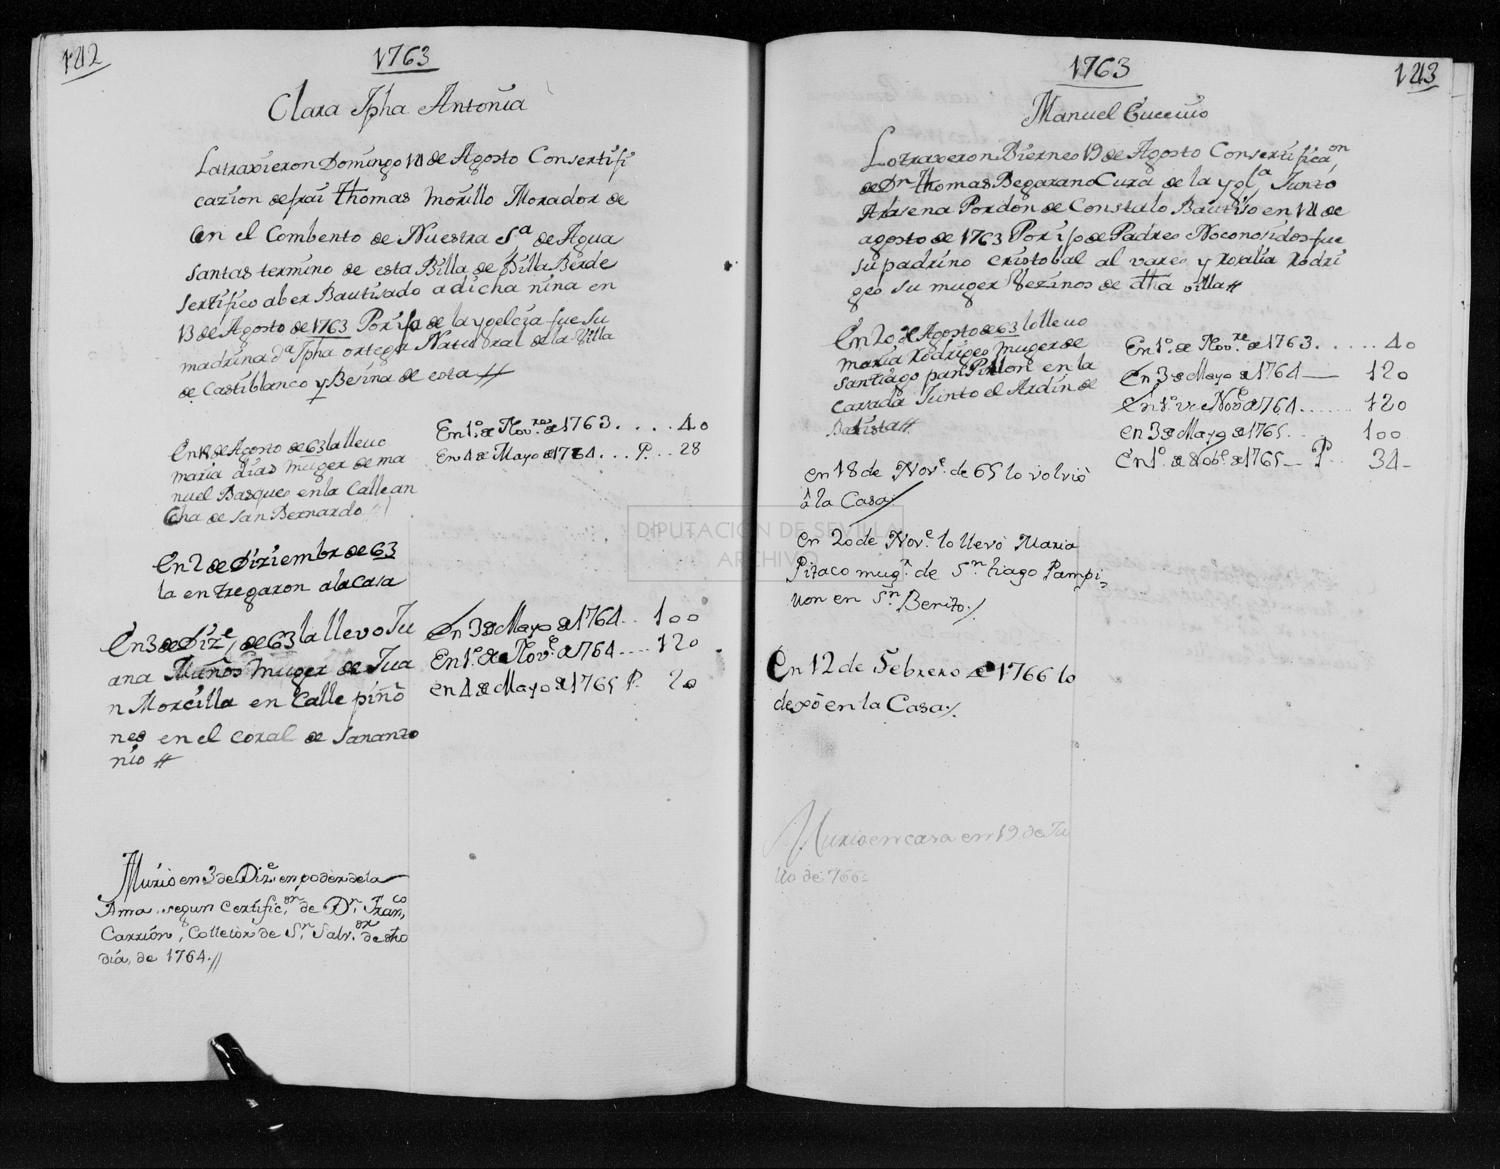 142
1763
Clara Jpha Antonia
La traxieron Domingo 14 de Agosto Con sertifi
cazion de frai Thomas Morillo Morador de
en el Combento de Nuestra Sa. de Agua
santas termino de esta Billa de Billa Berde
sertifico aber Bautisado a dicha nina en
13 de Agosto de 1763 Por isa de la ygelcia fue su
madrina da. Jpha ortega Natural de la Villa
de Castiblanco y Besina de esta //
En 1º. de Novre. de 1763 . . . . 40
En 4 de Mayo de 1764 . . . P. . . 28
En de Agosto de 63 la lleuo
maria dias muger de ma
nuel Basques en la Calle an
cha de san Bernardo
En 2 de Diziembre de 63
la entregaron a la casa
En 3 de Dize. de 63 la llevo Ju
ana Muños muger de Jua
n Morcilla en Calle piño
nes en el coral de san anto
nio //
En 3 de Mayo de 1764 . . 100
En 1º. de Nove. de 1764 . . . . 120
en 4 de Mayo de 1765 P. 20
Murio en 3 de Dize. en poder de la
Ama, segun certificon. de Dn. Franco.
Carrion, Colletor de Sn. Salvor. de dho
dia, de 1764. //
DIPUTACIÓN DE SEVILLA
ARCHIVO
1763
143
Manuel Euceuio
Lo traxeron Bierneo 19 de Agosto Con sertificaon.
de Dn. Thomas Begarano Cura de la yglea. Junto
Arasena Por don de Consta lo Bautiso en 14 de
agosto de 1763 Por iso de Padres No conosidos fue
su padrino cristobal al vares y rosalia rodri
ges su muger Besinos de dha villa //
En 20 de Agosto de 63 lo lleuo
maria rodriges muger de
santiago panpillon en la
casada Junto el Ardin de
Batista //
En 1º. de Novre. de 1763 . . . . . 40
En 3 de Mayo de 1764 — 120
En 1º. de Nove. de 1764 . . . . . . 120
en 3 de Mayo de 1765 . . 100
En 1º. de Nobe. de 1765 — P. . . 34
en 18 de Nove. de 65 lo volvió
à la Casa /
en 20 de Nove. lo llevó Maria
Pitaco mugr. de Sn. tiago Pampi-
llon en Sn. Benito /
En 12 de Febrero de 1766 lo
dexó en la Casa /
Murio en casa en 19 de Ju
lio de 766